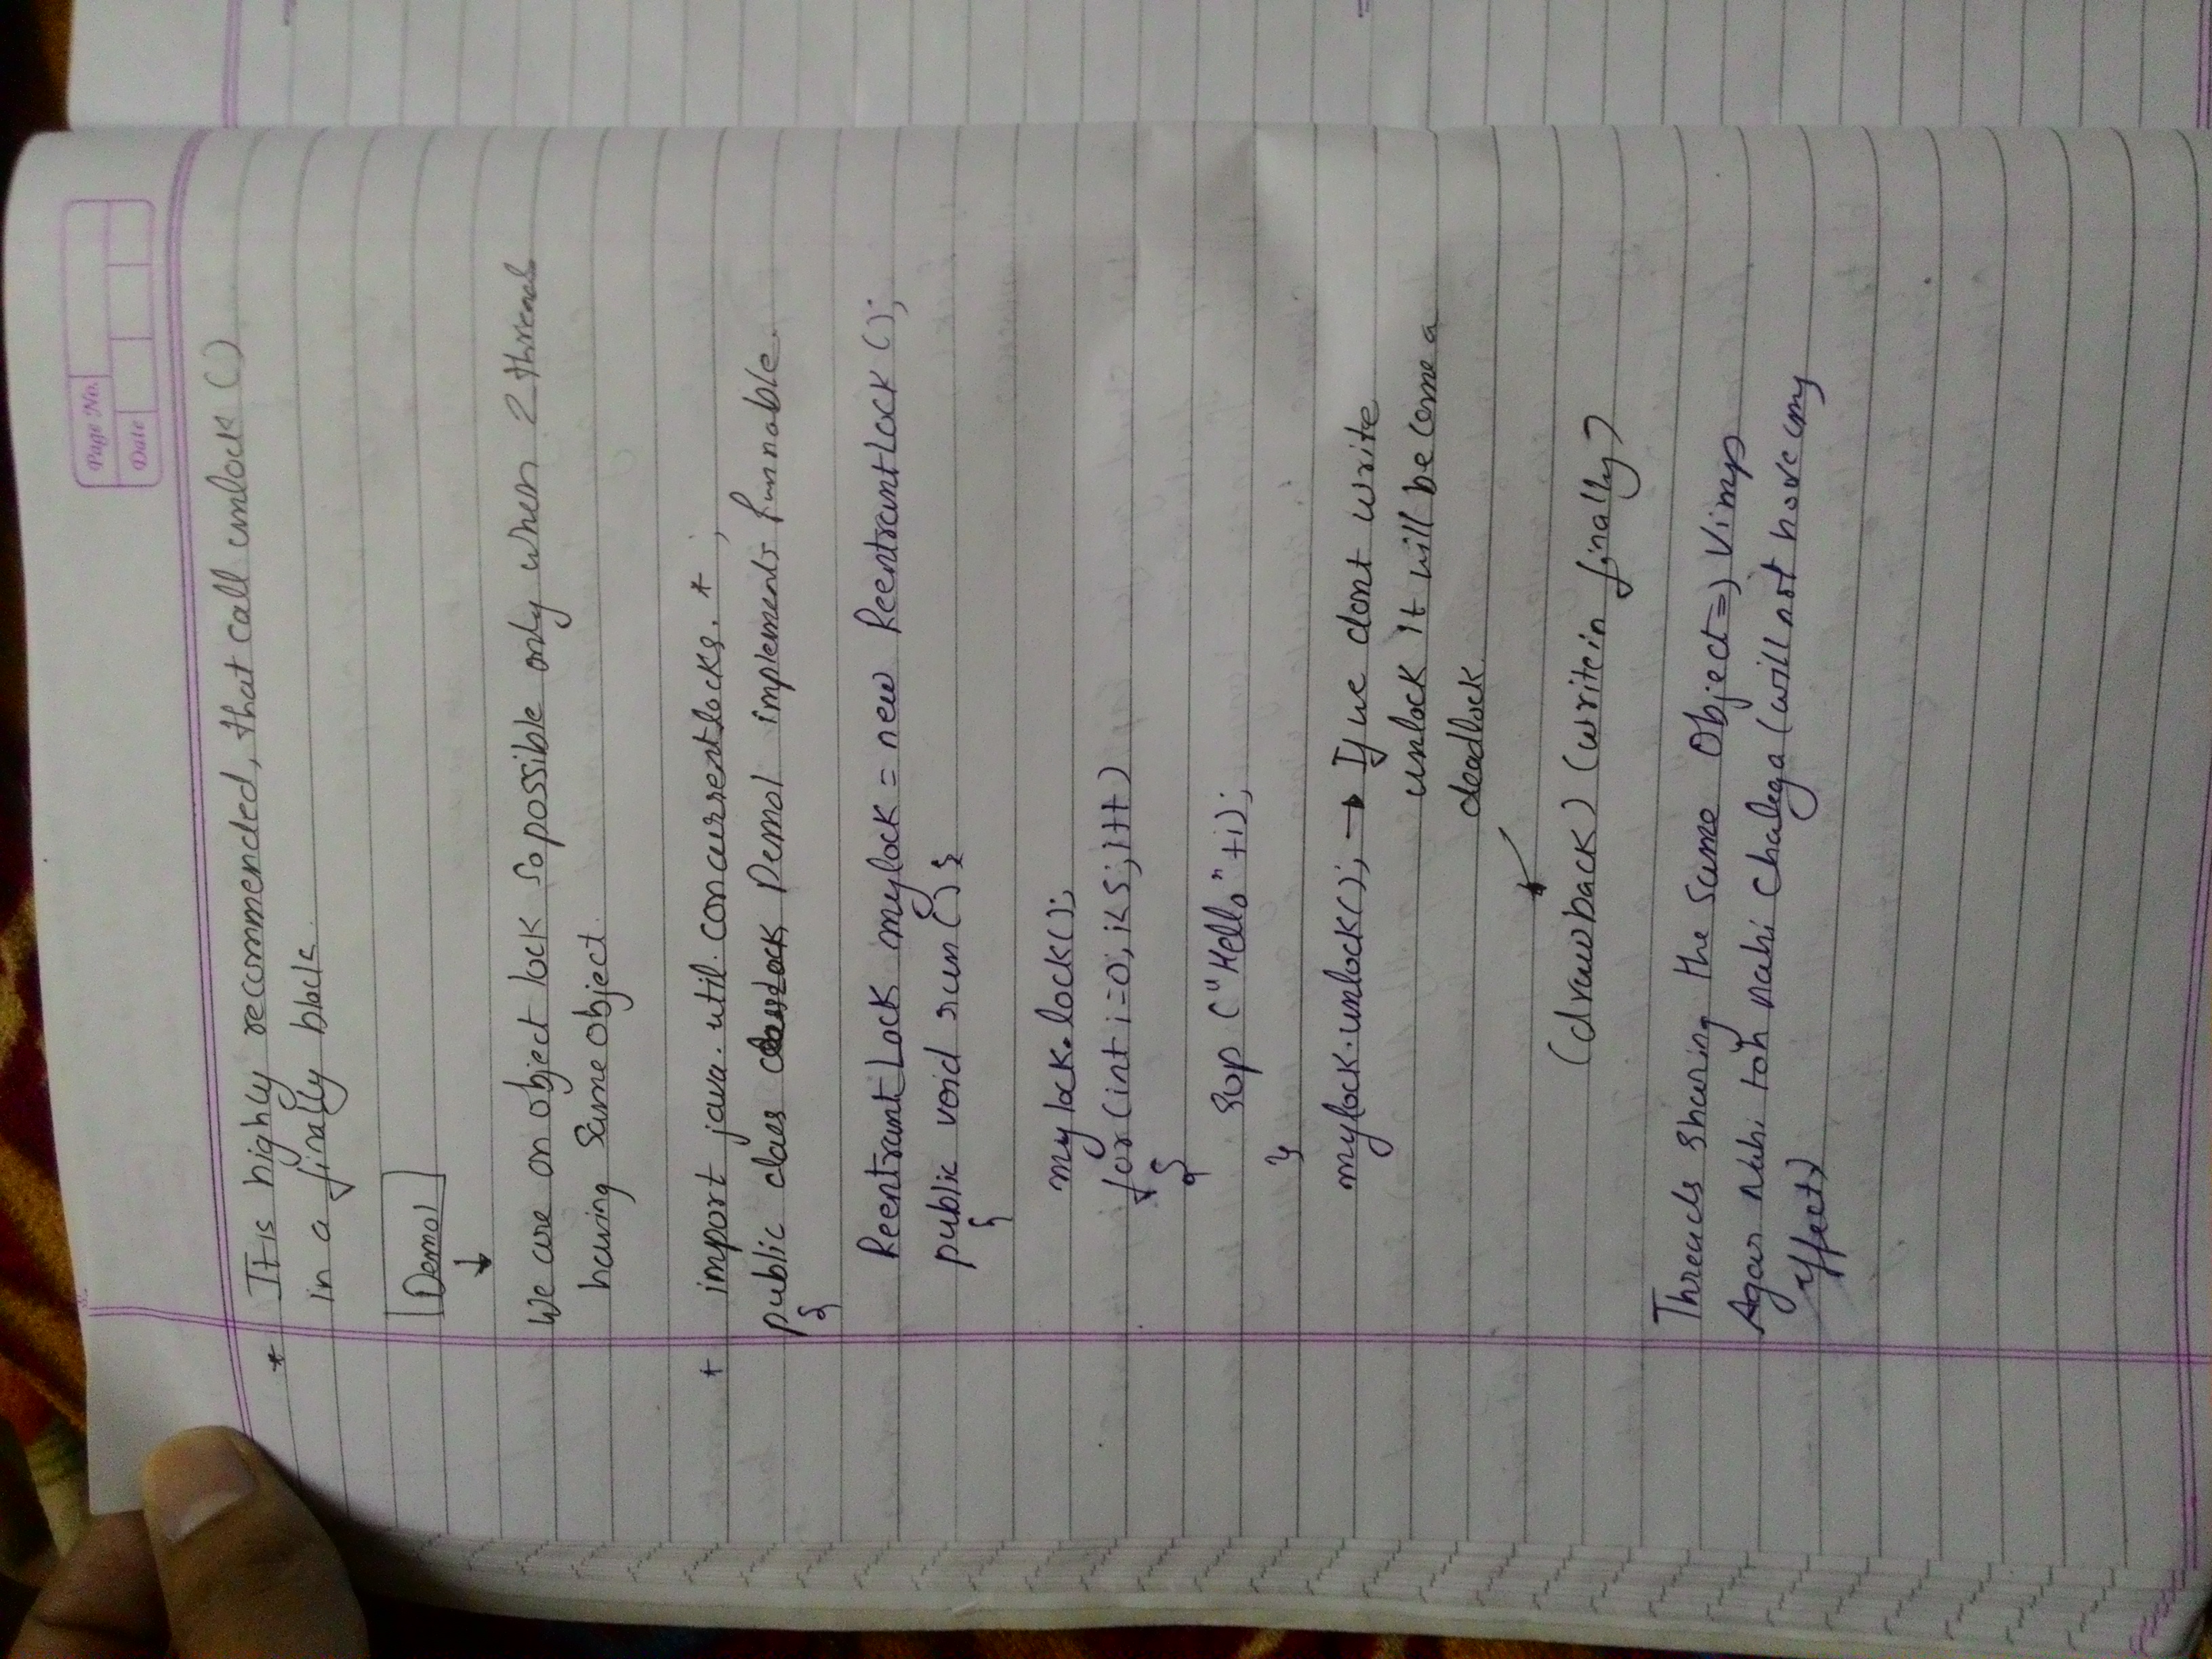 Page No.
Date
* It is highly recommended, that call unlock ()
in a finally block.
Demo1
↓
We are on object lock so possible only when 2 threads
having same object.
* import java.util.concurrentlocks.*;
public class Demo1 implements Runnable.
{
ReentrantLock mylock = new ReentrantLock ();
public void run() {
{
mylock.lock();
for(int i=0; i<5; i++)
{
sop ("Hello"+i);
}
mylock.unlock(); → If we dont write
unlock it will become a
deadlock.
(drawback) (write in finally)
Threads sharing the same Object => Vimp
Agar Nahi toh nahi Chalega (will not have any
effect)